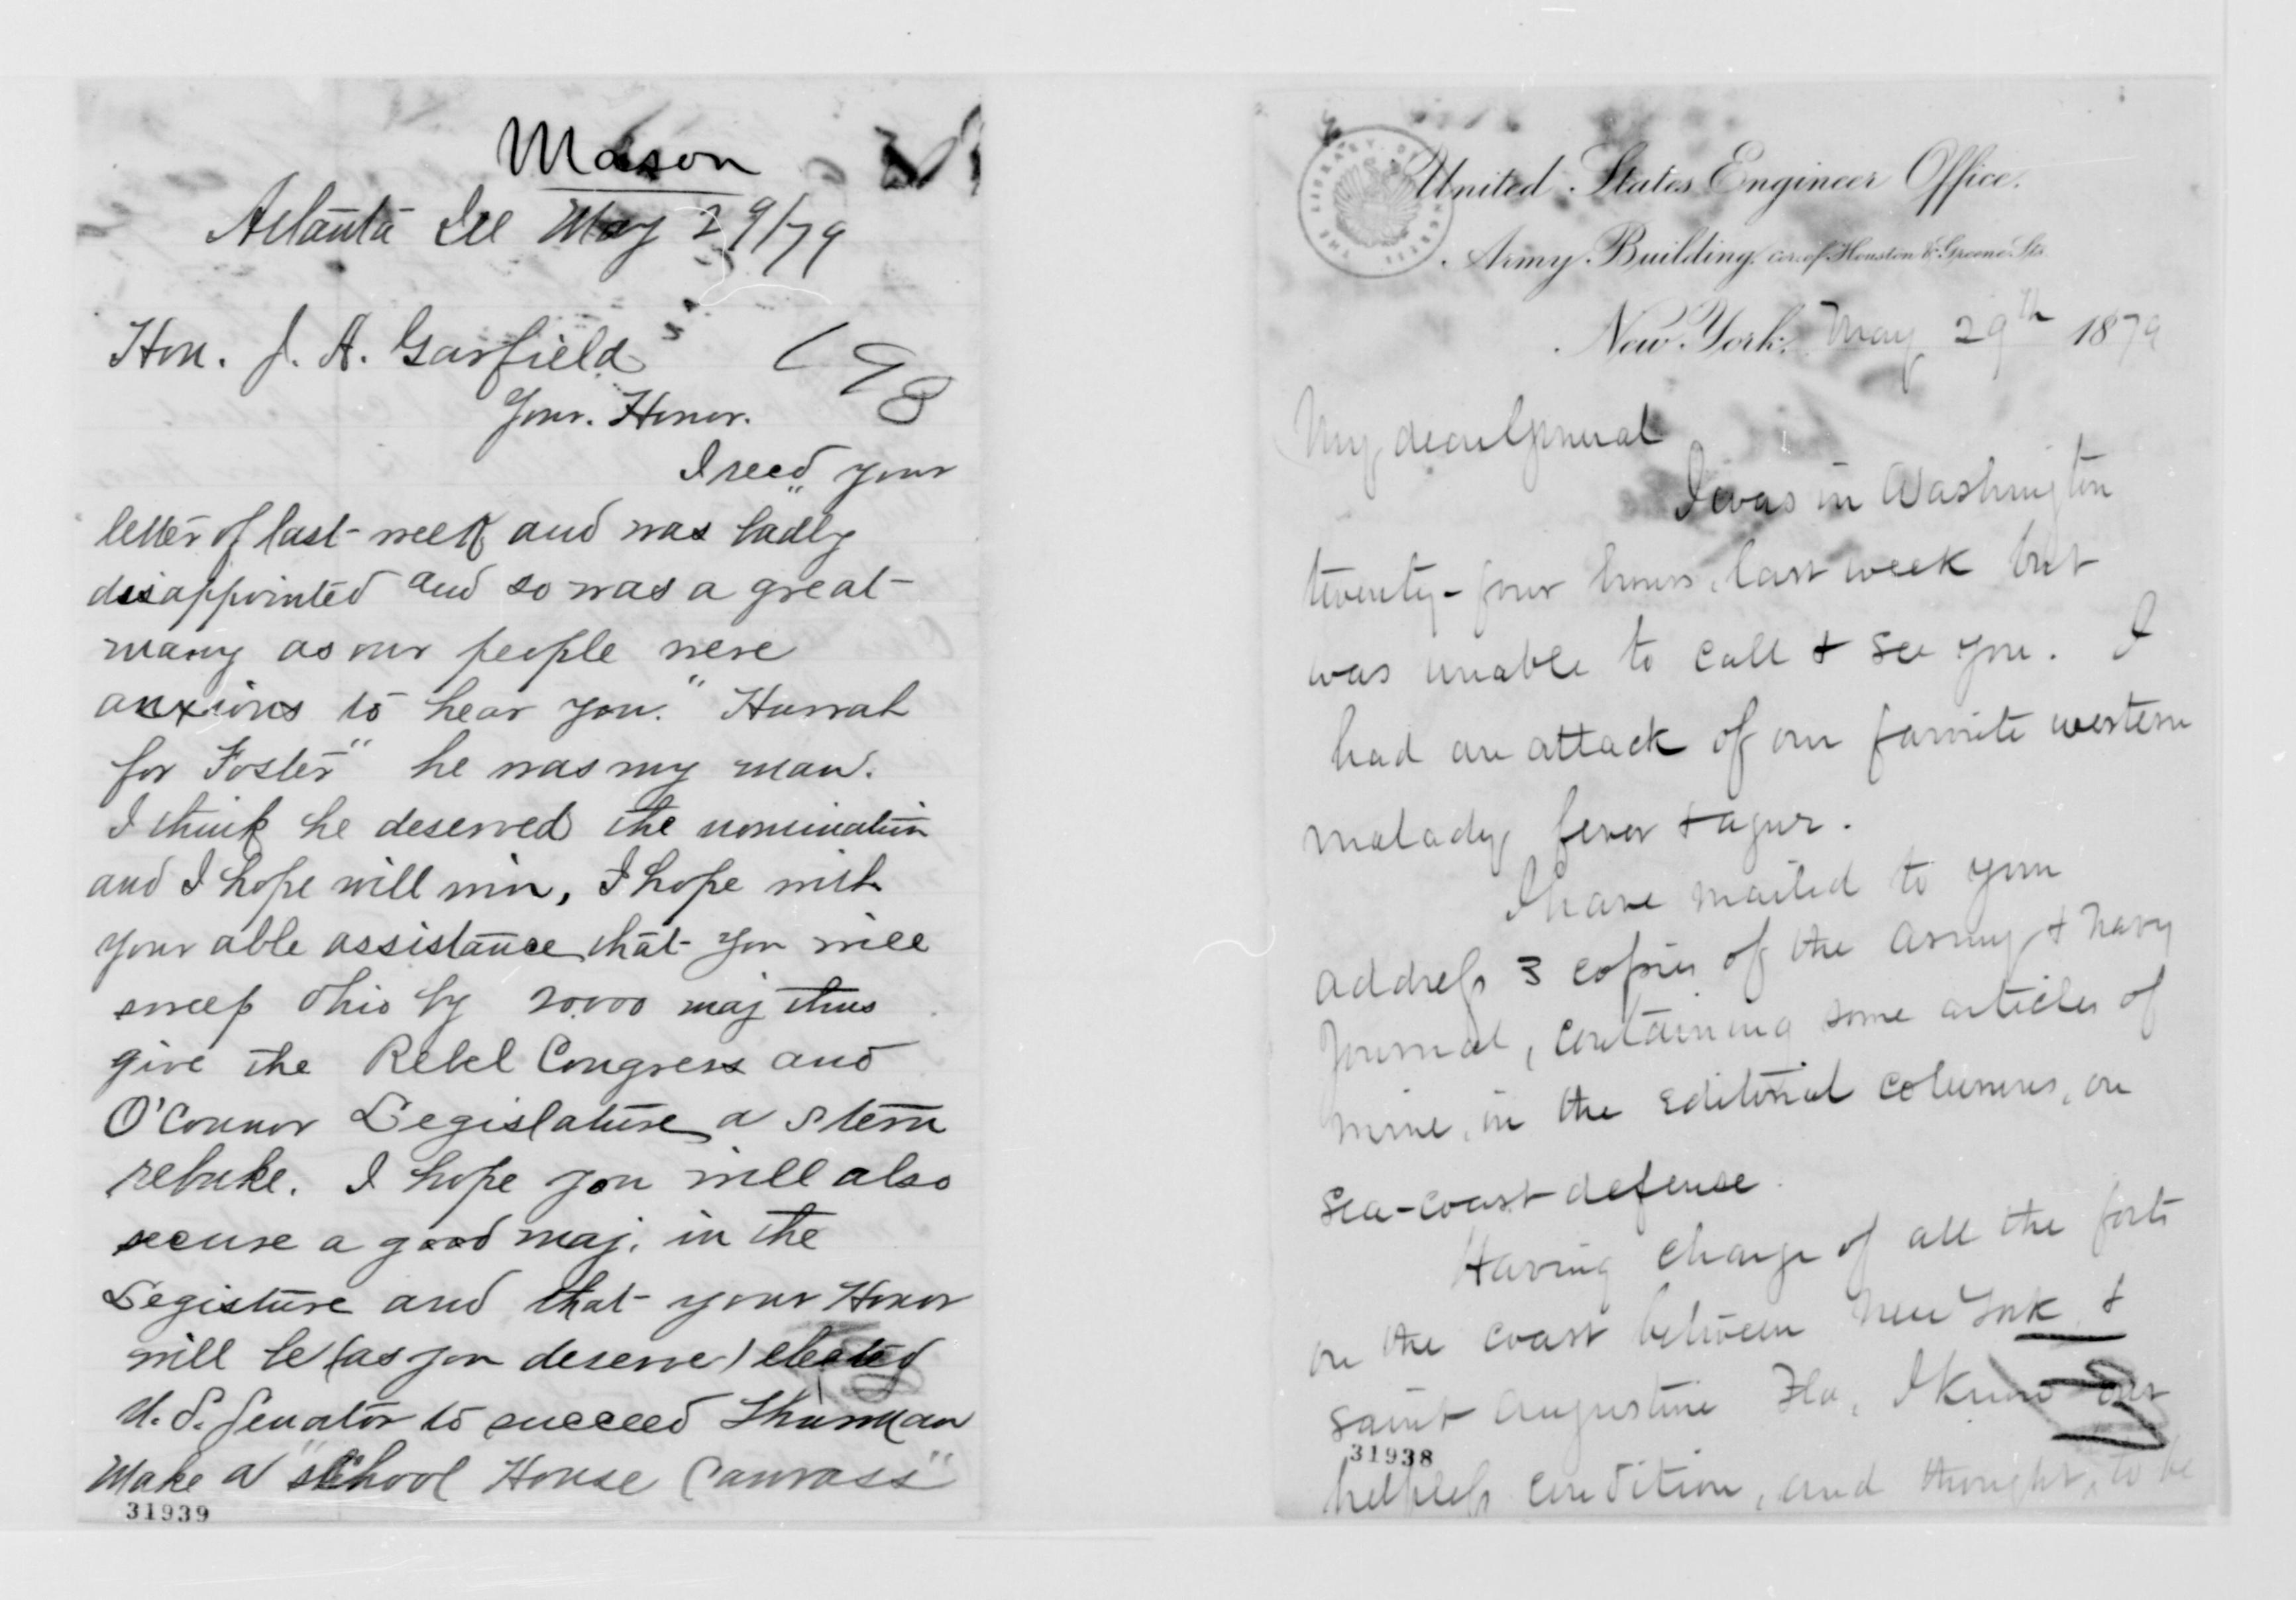 Mason
Atlanta Ill May 29/79
Hon. J. A. Garfield
Your. Honor.
I recd your
letter of last week and was badly
disappointed and so was a great
many as our people were
anxious to hear you. "Hurrah
for Foster" he was my man.
I think he deserved the nomination
and I hope will win, I hope with
your able assistance that you will
sweep Ohio by 20.000 maj thus
give the Rebel Congress and
O'Connor Legislature a stern
rebuke. I hope you will also
secure a good maj. in the
Legisture and that your Honor
will be (as you deserve) elected
U. S. Senator to succeed Thurman
Make a "School House Canvass"
31939
United States Engineer Office.
Army Building, cor. of Houston & Greene Sts
New York, May 29th 1879
My dear General
I was in Washington
twenty-four hours, last week but
was unable to call & see you. I
had an attack of our favorite western
malady fever & ague.
I have mailed to your
address 3 copies of the Army & Navy
Journal, containing some articles of
mine, in the editorial columns, on
sea-coast defense.
Having charge of all the forts
on the coast between New York &
Saint Augustine Fla, I know our
31938
helpless condition, and thought, to be